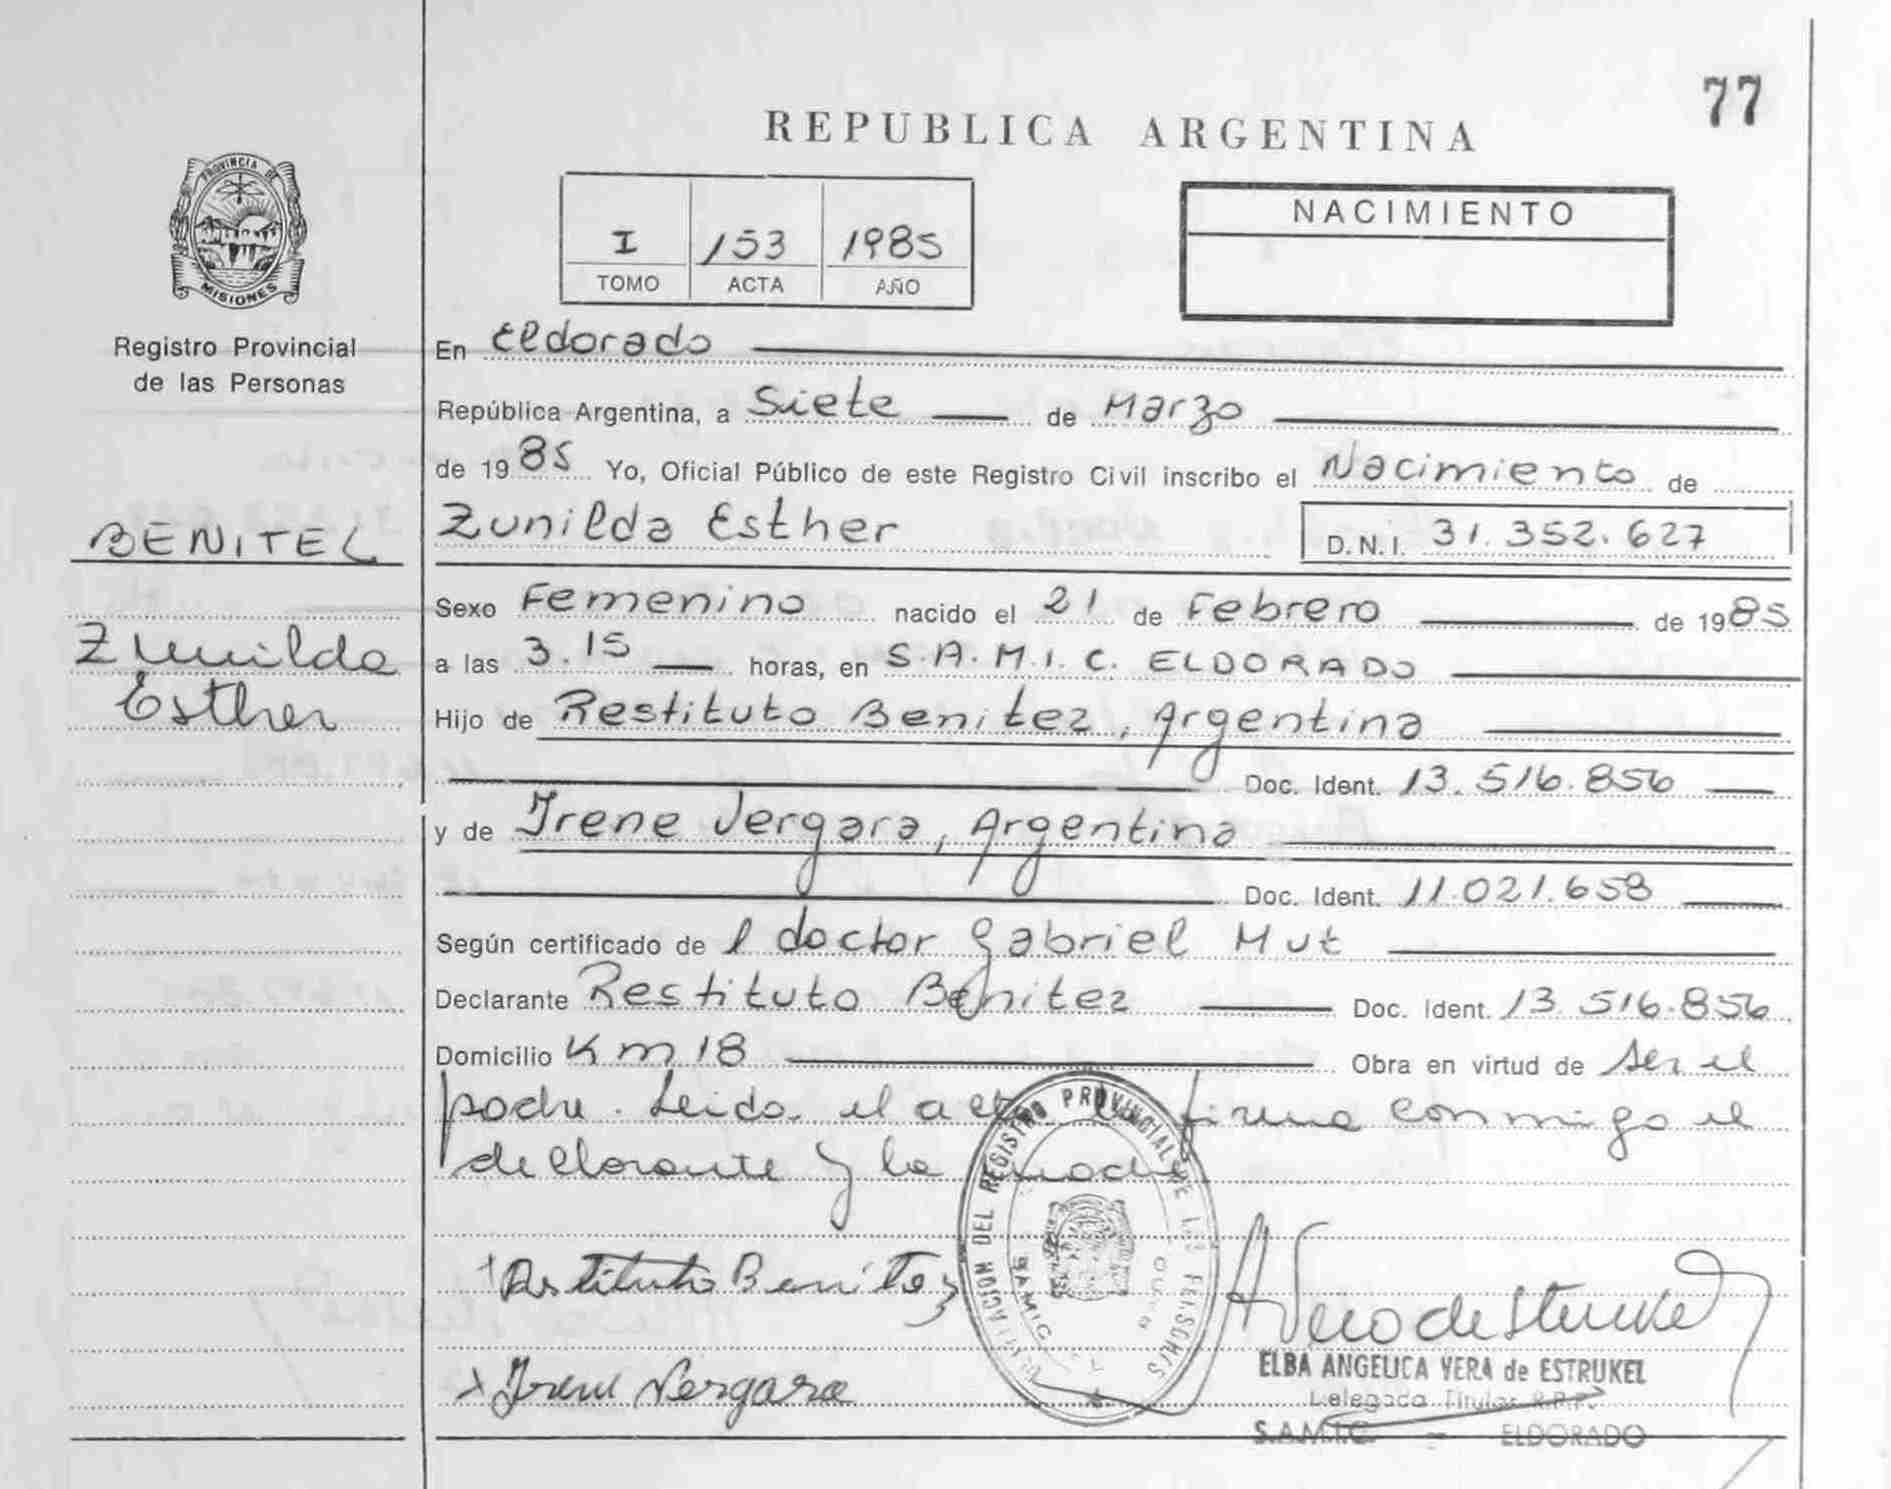 77
REPUBLICA ARGENTINA
PROVINCIA DE
MISIONES
Registro Provincial
de las Personas
BENITEZ
Zunilda
Esther
I 153 1985
TOMO ACTA AÑO
NACIMIENTO
En Eldorado
República Argentina, a Siete de Marzo
de 1985 Yo, Oficial Público de este Registro Civil inscribo el Nacimiento de
Zunilda Esther D.N.I. 31.352.627
Sexo Femenino nacido el 21 de Febrero de 1985
a las 3.15 horas, en S.A.M.I.C. ELDORADO
Hijo de Restituto Benitez, Argentina
Doc. Ident. 13.516.856
y de Irene Vergara, Argentina
Doc. Ident. 11.021.658
Según certificado de l doctor Gabriel Mut
Declarante Restituto Benitez Doc. Ident. 13.516.856
Domicilio Km 18 Obra en virtud de ser el
padre. Leida el acta firma conmigo el
declarante y la madre
DEL REGISTRO PROVINCIAL DE LAS PERSONAS
SAMIC
Restituto Benitez
x Irene Vergara
AVera de Estrukel
ELBA ANGELICA VERA de ESTRUKEL
Delegada Titular R.P.P.
S.A.M.I.C. - ELDORADO